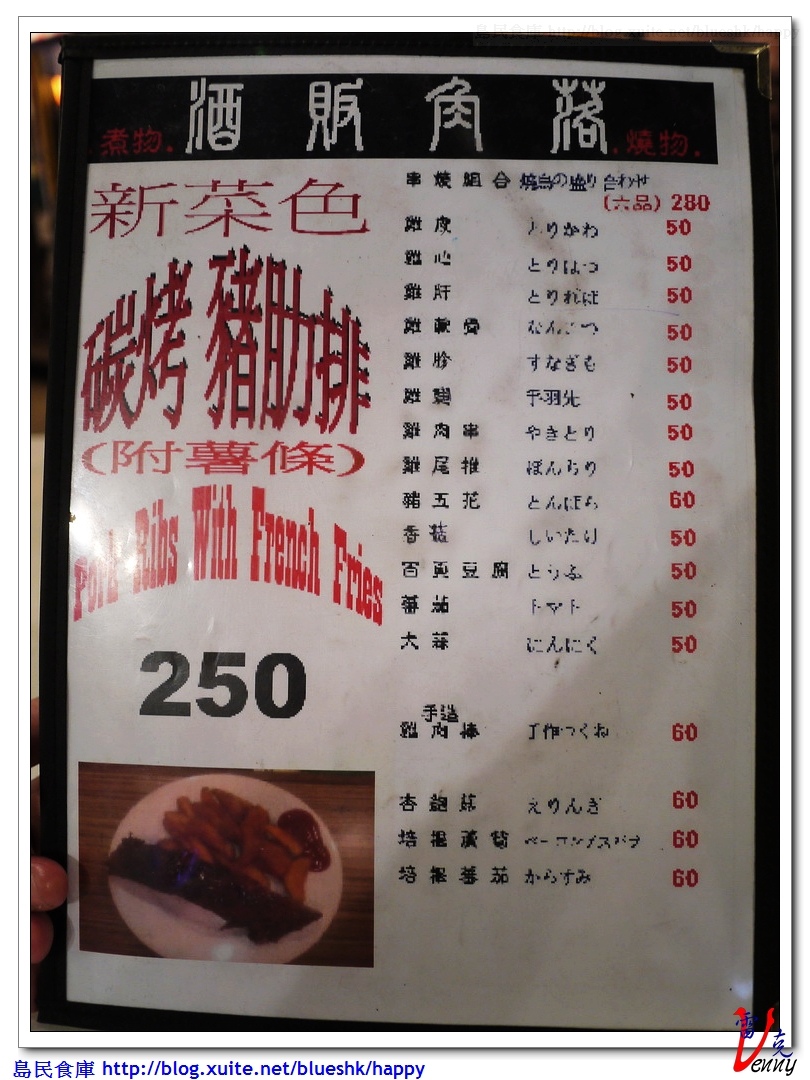 島民食庫 http://blog.xuite.net/blueshk/happy
.煮物. 酒販角落 .燒物.
新菜色
碳烤豬肋排
(附薯條)
Pork Ribs With French Fries
250
串燒組合 焼鳥の盛り合わせ
(六品) 280
雞皮 とりかわ 50
雞心 とりはつ 50
雞肝 とりればー 50
雞軟骨 なんこつ 50
雞胗 すなぎも 50
雞翅 手羽先 50
雞肉串 やきとり 50
雞尾椎 ぼんちり 50
豬五花 とんばら 60
香菇 しいたけ 50
百頁豆腐 とうふ 50
蕃茄 トマト 50
大蒜 にんにく 50
手造
雞肉棒 手作つくね 60
杏鮑菇 えりんぎ 60
培根蘆筍 60
培根蕃茄 からすみ 60
雷克
Venny
島民食庫 http://blog.xuite.net/blueshk/happy